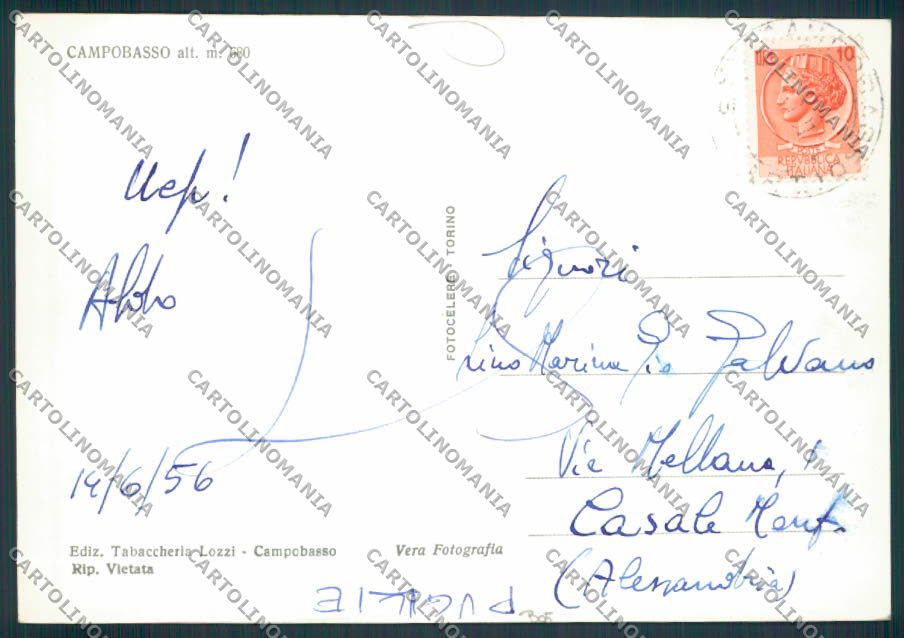 CAMPOBASSO alt. m. 680
10
POSTE
REPVBBLICA
ITALIANA
Uep!
Aldo
14/6/56
FOTOCELERE TORINO
Signori
Lino Marina Pio
Via Mellana, 1
Casale Monf.
(Alessandria)
Ediz. Tabaccheria Lozzi - Campobasso
Rip. Vietata
Vera Fotografia
PUGLIE
CARTOLINOMANIA